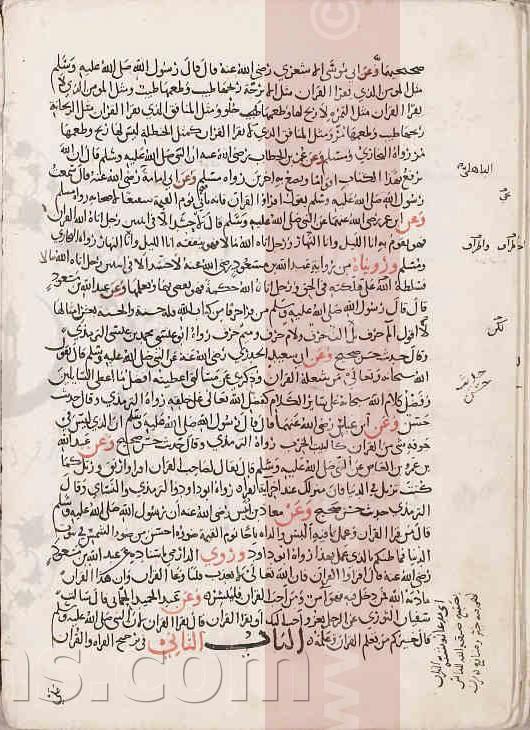 صحيحيهما وعن ابي موسى الاشعري رضي الله عنه قال قال رسول الله صلى الله عليه وسلم
مثل المومن الذي يقرا القران مثل الاترجة ريحها طيب وطعمها طيب ومثل المومن الذي لا
يقرا القران مثل التمرة لا ريح لها وطعمها طيب حلو ومثل المنافق الذي يقرا القران مثل الريحانة
ريحها طيب وطعمها مر ومثل المنافق الذي لا يقرا القران كمثل الحنظلة ليس لها ريح وطعمها
مر رواه البخاري ومسلم وعن عمر بن الخطاب رضي الله عنه ان النبي صلى الله عليه وسلم قال ان الله
يرفع بهذا الكتاب اقواما ويضع به اخرين رواه مسلم وعن ابي امامة رضي الله عنه قال سمعت
رسول الله صلى الله عليه وسلم يقول اقروا القران فانه ياتي يوم القيمة شفيعا لاصحابه رواه مسلم
وعن ابن عمر رضي الله عنهما عن النبي صلى الله عليه وسلم قال لا حسد الا في اثنين رجل اتاه الله القران
فهو يقوم به اناء الليل واناء النهار ورجل اتاه الله مالا فهو ينفقه اناء الليل واناء النهار رواه البخاري
ومسلم ورويناه من رواية عبد الله بن مسعود رضي الله عنه لا حسد الا في اثنين رجل اتاه الله مالا
فسلطه الله على هلكته في الحق ورجل اتاه الله حكمة فهو يقضي بها ويعلمها وعن عبد الله بن مسعود
قال قال رسول الله صلى الله عليه وسلم من قرا حرفا من كتاب الله فله حسنة والحسنة بعشر امثالها
لا اقول الم حرف بل الف حرف ولام حرف وميم حرف رواه ابو عيسى محمد بن عيسى الترمذي
وقال حديث حسن صحيح وعن ابي سعيد الخدري رضي الله عنه عن النبي صلى الله عليه وسلم قال يقول
الله سبحانه وتعالى من شغله القران وذكري عن مسالتي اعطيته افضل ما اعطي السايلين
وفضل كلام الله سبحانه على ساير الكلام كفضل الله تعالى على خلقه رواه الترمذي وقال حديث
حسن وعن ابن عباس رضي الله عنهما قال قال رسول الله صلى الله عليه وسلم ان الذي ليس في
جوفه شي من القران كالبيت الخرب رواه الترمذي وقال حديث حسن صحيح وعن عبد الله
بن عمرو بن العاص عن النبي صلى الله عليه وسلم قال يقال لصاحب القران اقرا وارتق ورتل كما
كنت ترتل في الدنيا فان منزلك عند اخر اية تقراها رواه ابو داود والترمذي والنسائي وقال
الترمذي حديث حسن صحيح وعن معاذ بن انس رضي الله عنه ان رسول الله صلى الله عليه وسلم
قال من قرا القران وعمل بما فيه البس والداه تاجا يوم القيمة ضوءه احسن من ضوء الشمس في بيوت
الدنيا فما ظنكم بالذي عمل بهذا رواه ابو داود وروى الدارمي باسناده عن عبد الله بن مسعود
رضي الله عنه قال اقروا القران فان الله تعالى لا يعذب قلبا وعى القران وان هذا القران
مادبة الله فمن دخل فيه فهو امن ومن احب القران فليبشر وعن عبد الحميد الحماني قال سالت
سفيان الثوري عن الرجل يغزو احب اليك او يقرا القران قال يقرا القران لان النبي صلى الله عليه وسلم
قال خيركم من تعلم القران وعلمه الباب الثاني في ترجيح القراة والقران
الباهلي